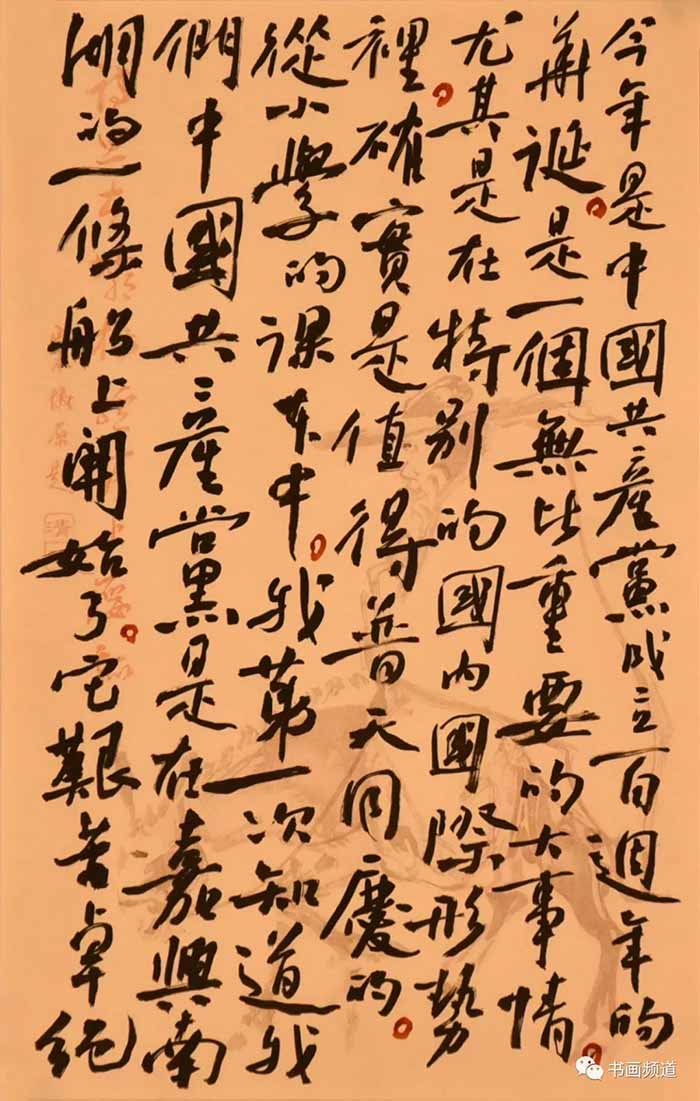 今年是中國共產黨成立一百週年的
華誕。是一個無比重要的大事情。
尤其是在特别的國内國際形勢
裡。確實是值得普天同慶的。
從小學的课本中。我第一次知道我
們中國共產黨是在嘉興南
湖的一條船上開始了。它艱苦卓絕
书画频道